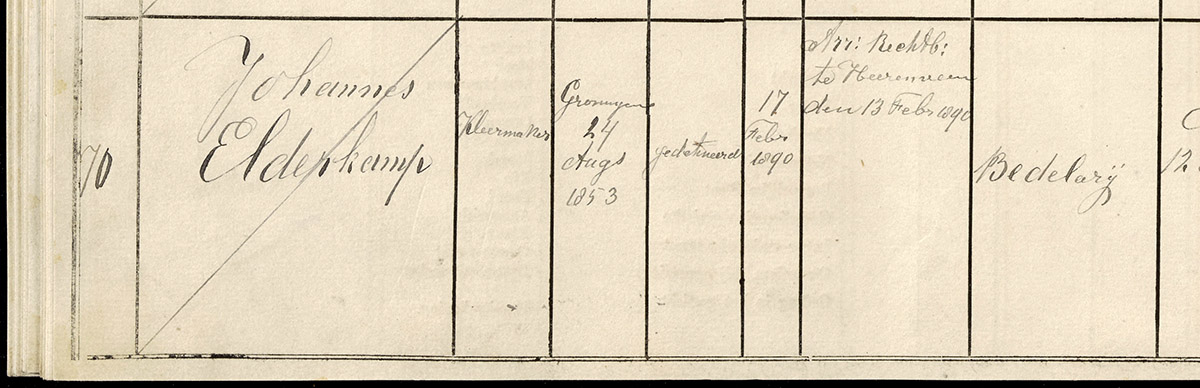 70
Johannes
Elderkamp
Kleermaker
Groningen
24
Augs
1853
gedetineerd
17
Febr
1890
Arr: Rechtb:
te Heerenveen
den 13 Febr 1890
Bedelarij
12